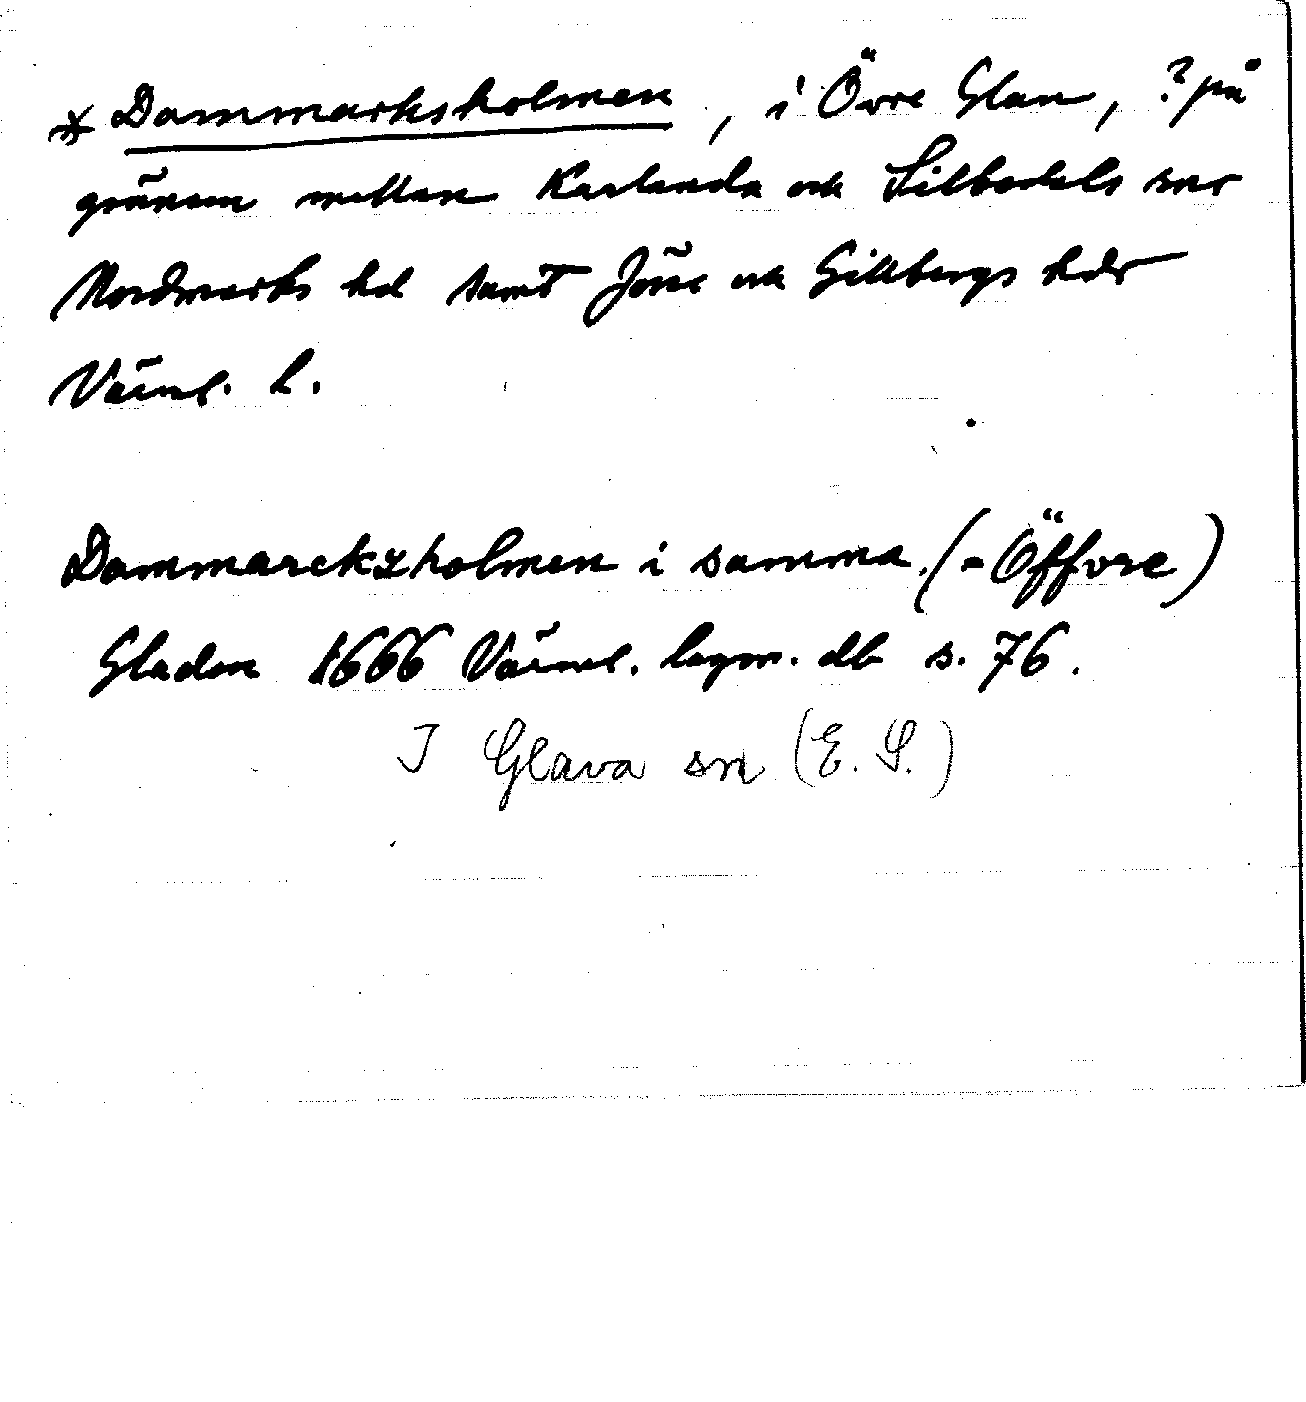 * Dammarksholmen, i Övre Glan, ? på
gränsen mellan Karlanda och Silbodals snr
Nordmarks hd samt Jösse och Gillbergs hdr
Värml. l.
Dammarckzholmen i samma (= Öffvre)
Gladen 1666 Värml. lagm. db s. 76.
I Glava sn (E. S.)